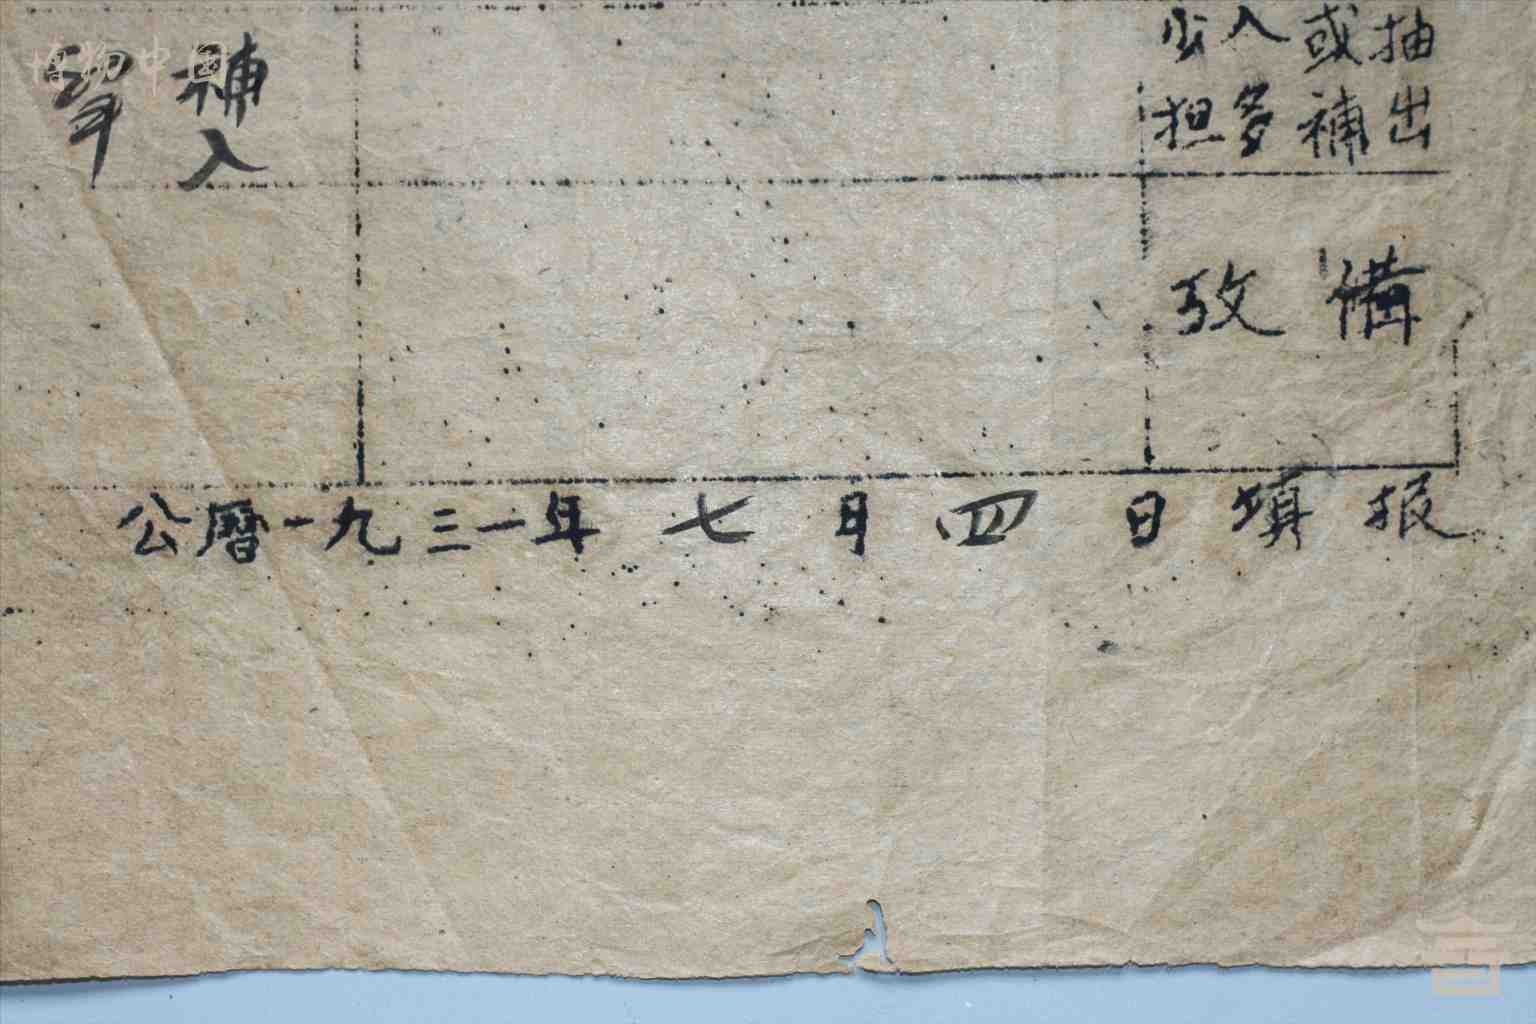 博物中国
抽出
或補
入多
少担
備攷
補入
公曆一九三一年七月四日填报